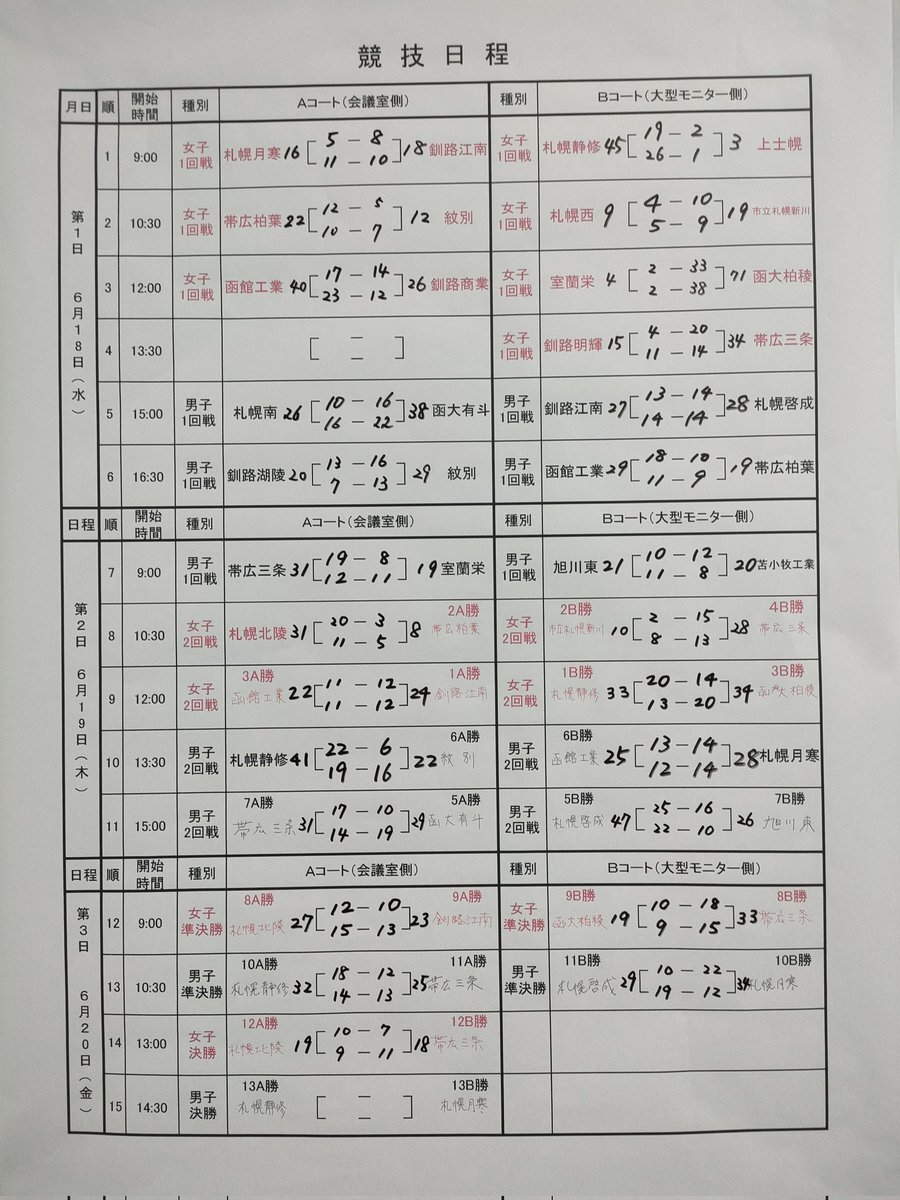 競技日程
月日 順 開始時間 種別 Aコート(会議室側) 種別 Bコート(大型モニター側)
第1日 6月18日(水)
1 9:00 女子1回戦 札幌月寒 16 [5 - 8 / 11 - 10] 18 釧路江南 女子1回戦 札幌静修 45 [19 - 2 / 26 - 1] 3 上士幌
2 10:30 女子1回戦 帯広柏葉 22 [12 - 5 / 10 - 7] 12 紋別 女子1回戦 札幌西 9 [4 - 10 / 5 - 9] 19 市立札幌新川
3 12:00 女子1回戦 函館工業 40 [17 - 14 / 23 - 12] 26 釧路商業 女子1回戦 室蘭栄 4 [2 - 33 / 2 - 38] 71 函大柏稜
4 13:30 [ - / - ] 女子1回戦 釧路明輝 15 [4 - 20 / 11 - 14] 34 帯広三条
5 15:00 男子1回戦 札幌南 26 [10 - 16 / 16 - 22] 38 函大有斗 男子1回戦 釧路江南 27 [13 - 14 / 14 - 14] 28 札幌啓成
6 16:30 男子1回戦 釧路湖陵 20 [13 - 16 / 7 - 13] 29 紋別 男子1回戦 函館工業 29 [18 - 10 / 11 - 9] 19 帯広柏葉
日程 順 開始時間 種別 Aコート(会議室側) 種別 Bコート(大型モニター側)
第2日 6月19日(木)
7 9:00 男子1回戦 帯広三条 31 [19 - 8 / 12 - 11] 19 室蘭栄 男子1回戦 旭川東 21 [10 - 12 / 11 - 8] 20 苫小牧工業
8 10:30 女子2回戦 札幌北陵 31 [20 - 3 / 11 - 5] 8 2A勝 帯広柏葉 女子2回戦 2B勝 市立札幌新川 10 [2 - 15 / 8 - 13] 28 4B勝 帯広三条
9 12:00 女子2回戦 3A勝 函館工業 22 [11 - 12 / 11 - 12] 24 1A勝 釧路江南 女子2回戦 1B勝 札幌静修 33 [20 - 14 / 13 - 20] 34 3B勝 函大柏稜
10 13:30 男子2回戦 札幌静修 41 [22 - 6 / 19 - 16] 22 6A勝 紋別 男子2回戦 6B勝 函館工業 25 [13 - 14 / 12 - 14] 28 札幌月寒
11 15:00 男子2回戦 7A勝 帯広三条 31 [17 - 10 / 14 - 19] 29 5A勝 函大有斗 男子2回戦 5B勝 札幌啓成 47 [25 - 16 / 22 - 10] 26 7B勝 旭川東
日程 順 開始時間 種別 Aコート(会議室側) 種別 Bコート(大型モニター側)
第3日 6月20日(金)
12 9:00 女子準決勝 8A勝 札幌北陵 27 [12 - 10 / 15 - 13] 23 9A勝 釧路江南 女子準決勝 9B勝 函大柏稜 19 [10 - 18 / 9 - 15] 33 8B勝 帯広三条
13 10:30 男子準決勝 10A勝 札幌静修 32 [18 - 12 / 14 - 13] 25 11A勝 帯広三条 男子準決勝 11B勝 札幌啓成 29 [10 - 22 / 19 - 12] 34 10B勝 札幌月寒
14 13:00 女子決勝 12A勝 札幌北陵 19 [10 - 7 / 9 - 11] 18 12B勝 帯広三条
15 14:30 男子決勝 13A勝 札幌静修 [ - / - ] 13B勝 札幌月寒